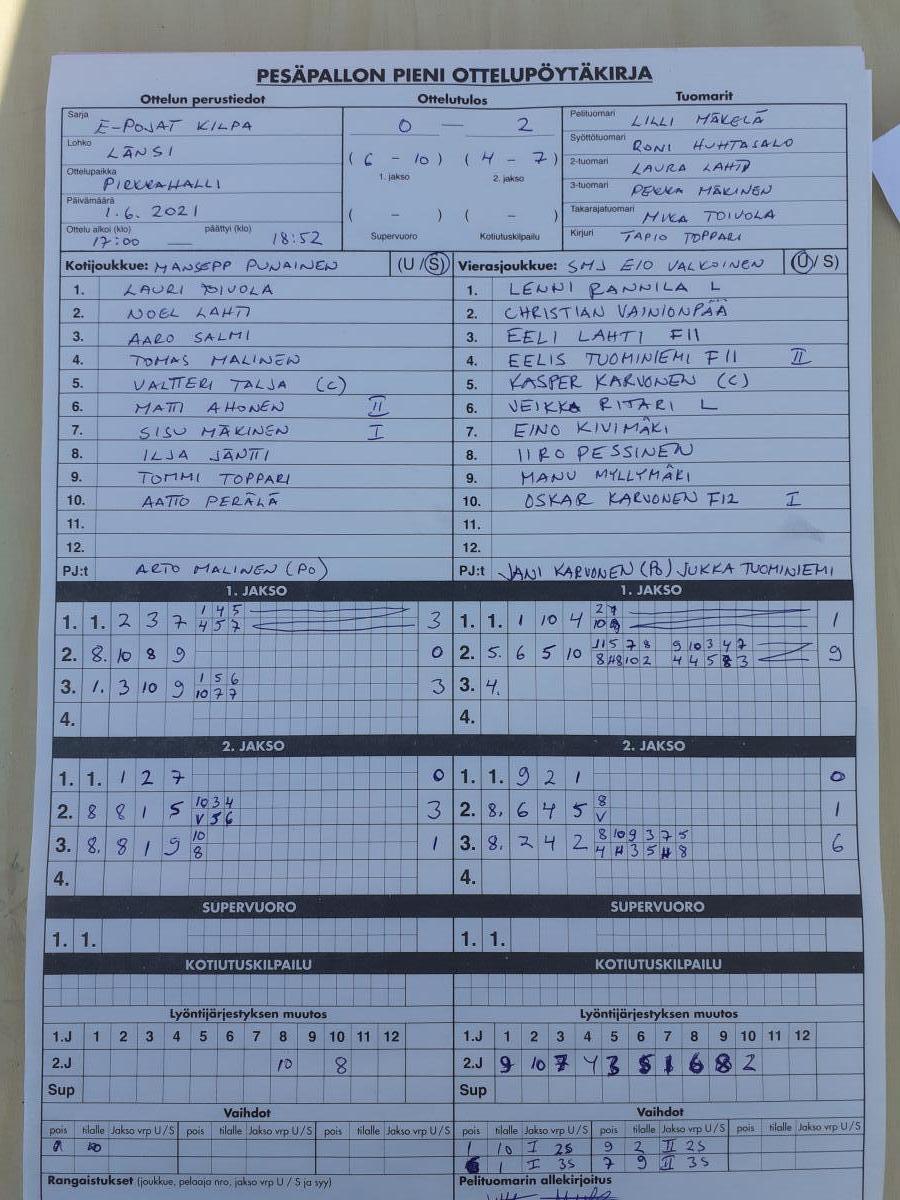 PESÄPALLON PIENI OTTELUPÖYTÄKIRJA
Ottelun perustiedot Ottelutulos Tuomarit
Sarja E-POJAT KILPA
Lohko LÄNSI
Ottelupaikka PIRKKAHALLI
Päivämäärä 1.6. 2021
Ottelu alkoi (klo) 17:00 — päättyi (klo) 18:52
0 — 2
( 6 - 10 ) ( 4 - 7 )
1. jakso 2. jakso
( - ) ( - )
Supervuoro Kotiutuskilpailu
Pelituomari LILLI MÄKELÄ
Syöttötuomari RONI HUHTASALO
2-tuomari LAURA LAHTI
3-tuomari PEKKA MÄKINEN
Takarajatuomari MIKA TOIVOLA
Kirjuri TAPIO TOPPARI
Kotijoukkue: MANSEPP PUNAINEN (U / S)
1. LAURI TOIVOLA
2. NOEL LAHTI
3. AARO SALMI
4. TOMAS MALINEN
5. VALTTERI TALJA (C)
6. MATTI AHONEN II
7. SISU MÄKINEN I
8. ILJA JÄNTTI
9. TOMMI TOPPARI
10. AATTO PERÄLÄ
11.
12.
PJ:t ARTO MALINEN (PO)
Vierasjoukkue: SMJ E10 VALKOINEN (U / S)
1. LENNI RANNILA L
2. CHRISTIAN VAINIONPÄÄ
3. EELI LAHTI F11
4. EELIS TUOMINIEMI F11 II
5. KASPER KARVONEN (C)
6. VEIKKA RITARI L
7. EINO KIVIMÄKI
8. IIRO PESSINEN
9. MANU MYLLYMÄKI
10. OSKAR KARVONEN F12 I
11.
12.
PJ:t JANI KARVONEN (PO) JUKKA TUOMINIEMI
1. JAKSO
1. 1. 2 3 7 1 4 5 3
4 5 7
2. 8. 10 8 9 0
3. 1. 3 10 9 1 5 6 3
10 7 7
4.
1. JAKSO
1. 1. 1 10 4 2 7 1
10
2. 5. 6 5 10 5 7 8 9 10 3 4 7 9
10 2 4 4 5 3
3. 4.
4.
2. JAKSO
1. 1. 1 2 7 0
2. 8 8 1 5 10 3 4 3
V 5 6
3. 8. 8 1 9 10 1
8
4.
2. JAKSO
1. 1. 9 2 1 0
2. 8. 6 4 5 8 1
V
3. 8. 2 4 2 8 10 9 3 7 5 6
4 3 5 8
4.
SUPERVUORO SUPERVUORO
1. 1. 1. 1.
KOTIUTUSKILPAILU KOTIUTUSKILPAILU
Lyöntijärjestyksen muutos
1.J 1 2 3 4 5 6 7 8 9 10 11 12
2.J 10 8
Sup
Lyöntijärjestyksen muutos
1.J 1 2 3 4 5 6 7 8 9 10 11 12
2.J 9 10 7 4 3 5 1 6 8 2
Sup
Vaihdot
pois tilalle Jakso vrp U/S pois tilalle Jakso vrp U/S pois tilalle Jakso vrp U/S
Vaihdot
pois tilalle Jakso vrp U/S pois tilalle Jakso vrp U/S pois tilalle Jakso vrp U/S
1 10 I 2S 9 2 II 2S
6 1 I 3S 7 9 II 3S
Rangaistukset (joukkue, pelaaja nro, jakso vrp U / S ja syy)
Pelituomarin allekirjoitus